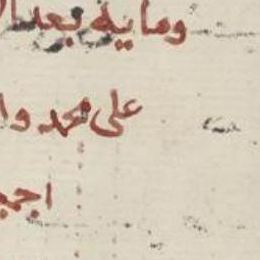 ومايه بعد ا
على محمد وا
اجمع